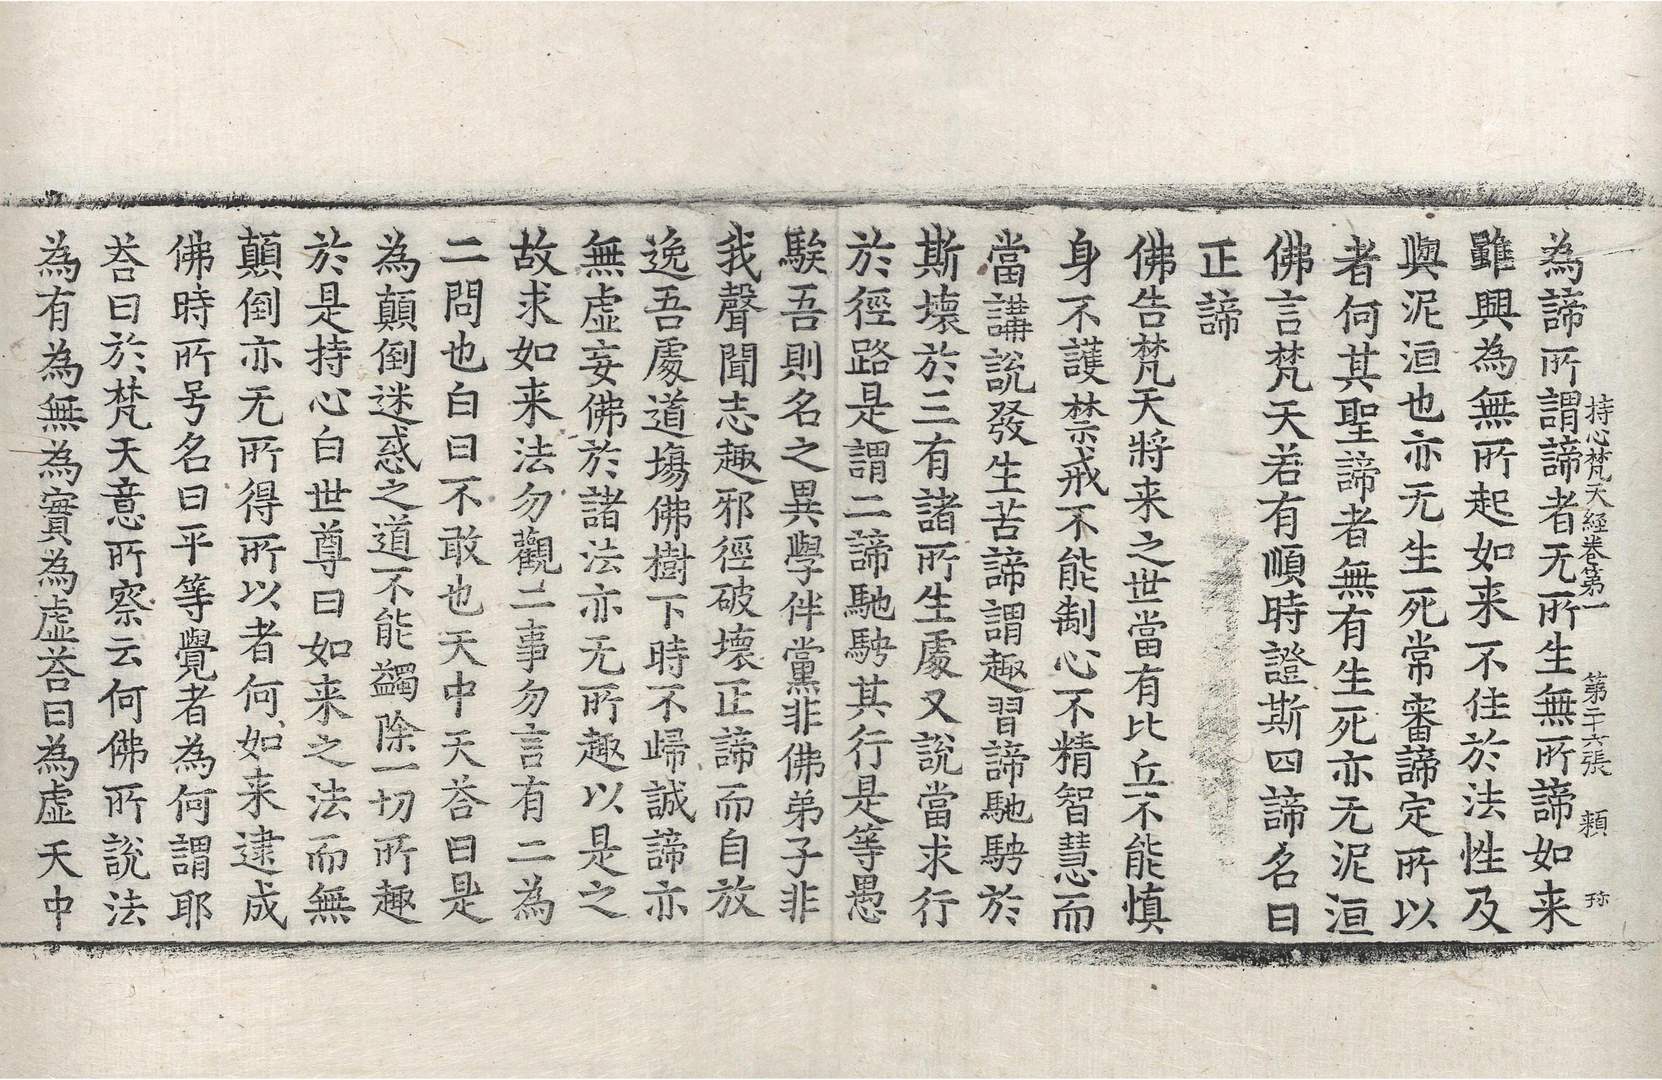 持心梵天経卷第一 第二十六張 頛 珎
為諦所謂諦者无所生無所諦如来
雖興為無所起如来不住於法性及
與泥洹也亦无生死常審諦定所以
者何其聖諦者無有生死亦无泥洹
佛言梵天若有順時證斯四諦名曰
正諦
佛告梵天將来之世當有比丘不能慎
身不護禁戒不能制心不精智慧而
當講說發生苦諦謂趣習諦馳騁於
斯壞於三有諸所生處又說當求行
於徑路是謂二諦馳騁其行是等愚
騃吾則名之異學伴黨非佛弟子非
我聲聞志趣邪徑破壞正諦而自放
逸吾處道場佛樹下時不歸誠諦亦
無虛妄佛於諸法亦无所趣以是之
故求如来法勿觀二事勿言有二為
二問也白曰不敢也天中天荅曰是
為顛倒迷惑之道不能蠲除一切所趣
於是持心白世尊曰如来之法而無
顛倒亦无所得所以者何如来逮成
佛時所号名曰平等覺者為何謂耶
荅曰於梵天意所察云何佛所說法
為有為無為實為虛荅曰為虛天中